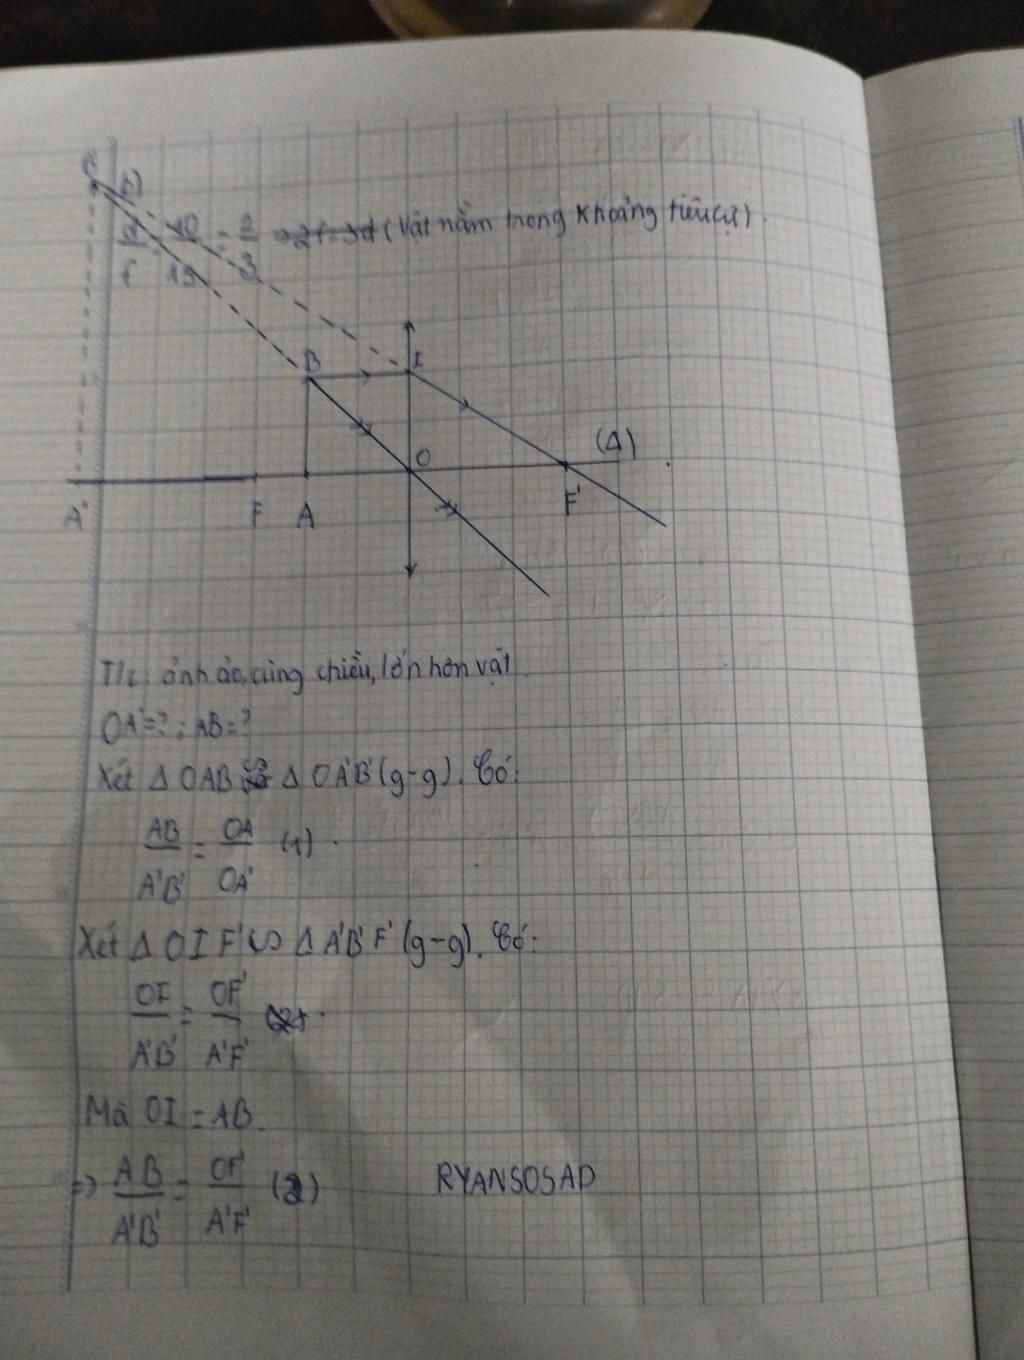 B'
b)
d/f = 10/15 = 2/3 => 2f=3d (Vật nằm trong khoảng tiêu cự).
B I
O (Δ)
A' F A F'
T/c: ảnh ảo, cùng chiều, lớn hơn vật
OA'=? ; AB=?
Xét Δ OAB ∽ Δ OA'B' (g-g). Có:
AB/A'B' = OA/OA' (1)
Xét Δ OIF' ∽ Δ A'B'F' (g-g). Có:
OI/A'B' = OF'/A'F'
Mà OI = AB.
=> AB/A'B' = OF'/A'F' (2)
RYANSOSAD